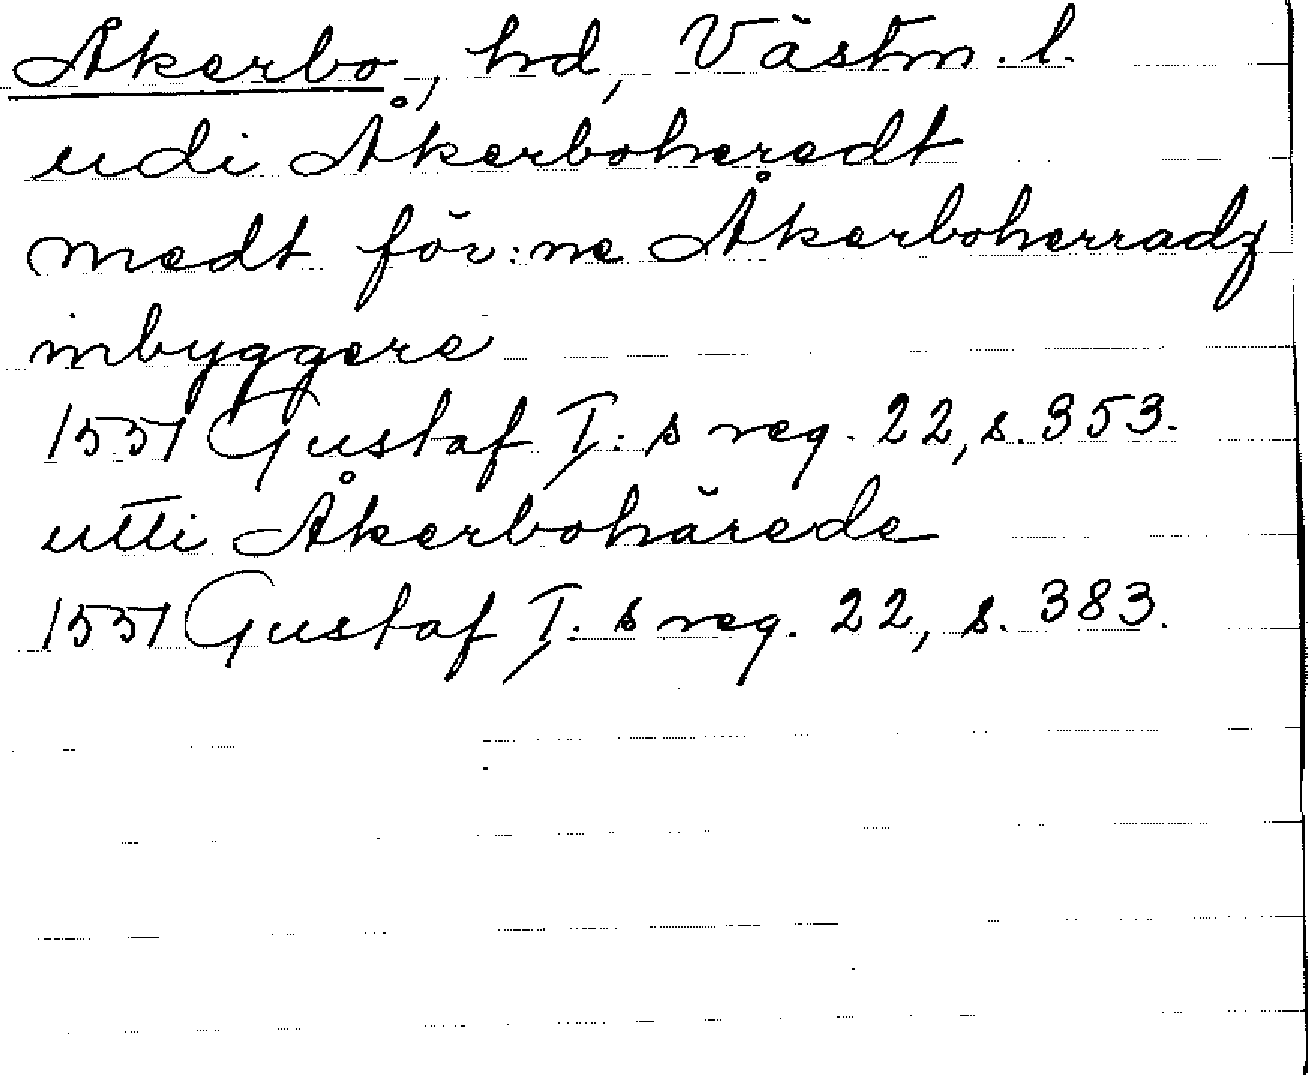 Åkerbo, hd, Västm. l.
udi Åkerboheredt
medt för:ne Åkerboherradz
inbyggere
1551 Gustaf I: s reg. 22, s. 353.
utti Åkerbohärede
1551 Gustaf I: s reg. 22, s. 383.